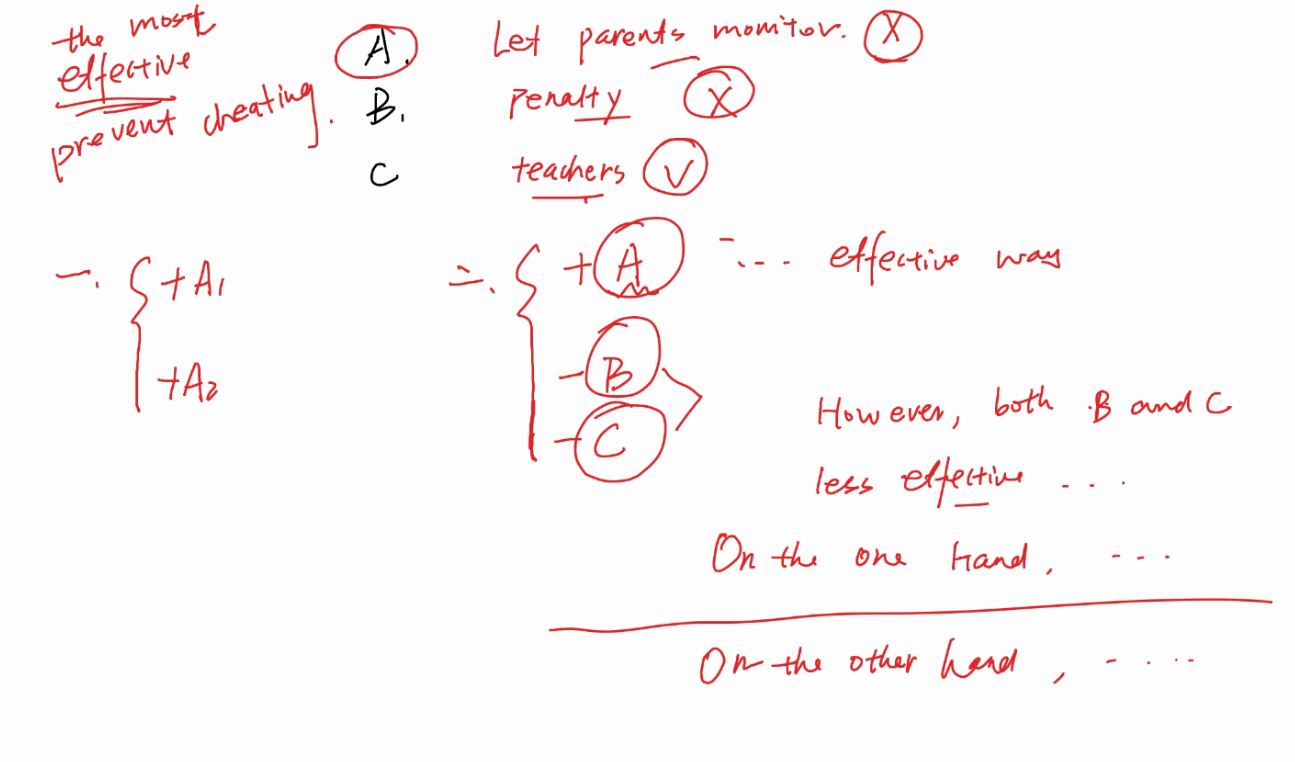 the most
effective
prevent cheating.
A. Let parents monitor. X
B. Penalty X
C teachers V
一. { +A1
+A2
二. { +A ... effective way
-B
-C
However, both B and C
less effective ....
On the one hand, ...
On the other hand, ....